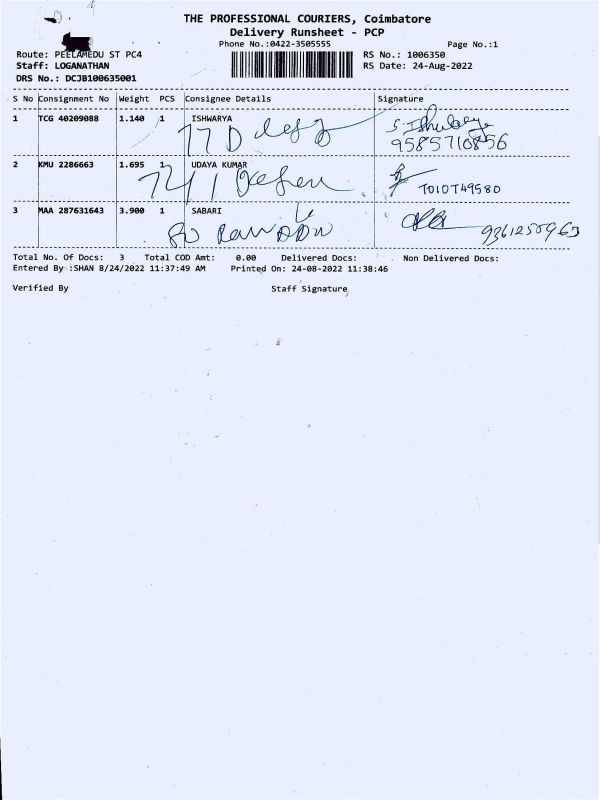 THE PROFESSIONAL COURIERS, Coimbatore
Delivery Runsheet - PCP
Phone No.:0422-3505555
Page No.:1
Route: PEELAMEDU ST PC4
RS No.: 1006350
Staff: LOGANATHAN
RS Date: 24-Aug-2022
DRS No.: DCJB100635001
S No Consignment No Weight PCS Consignee Details Signature
1 TCG 40209088 1.140 1 ISHWARYA
77D
9585710856
2 KMU 2286663 1.695 1 UDAYA KUMAR
741
3 MAA 287631643 3.900 1 SABARI
Total No. Of Docs: 3 Total COD Amt: 0.00 Delivered Docs: Non Delivered Docs:
Entered By :SHAN 8/24/2022 11:37:49 AM Printed On: 24-08-2022 11:38:46
Verified By Staff Signature